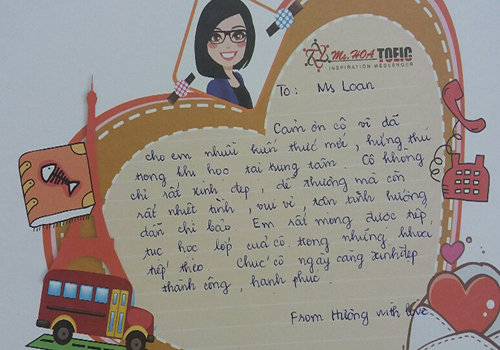 Ms. HOA TOEIC
INSPIRATION MESSENGER
To: Ms Loan
Cảm ơn cô vì đã
cho em nhiều kiến thức mới, hứng thú
trong khi học tại trung tâm. Cô không
chỉ rất xinh đẹp, dễ thương mà còn
rất nhiệt tình, vui vẻ, tận tình hướng
dẫn chỉ bảo Em rất mong được tiếp
tục học lớp của cô trong những khoá
tiếp theo. Chúc cô ngày càng xinh đẹp
thành công, hạnh phúc.
From Hường with love